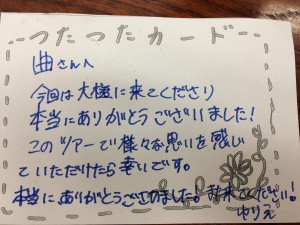 つたつたカード
曲さんへ
今回は大槌に来てくださり
本当にありがとうございました!
このツアーで様々な思いを感じ
ていただけたら幸いです。
本当にありがとうございました。また来てください!
ゆりえ